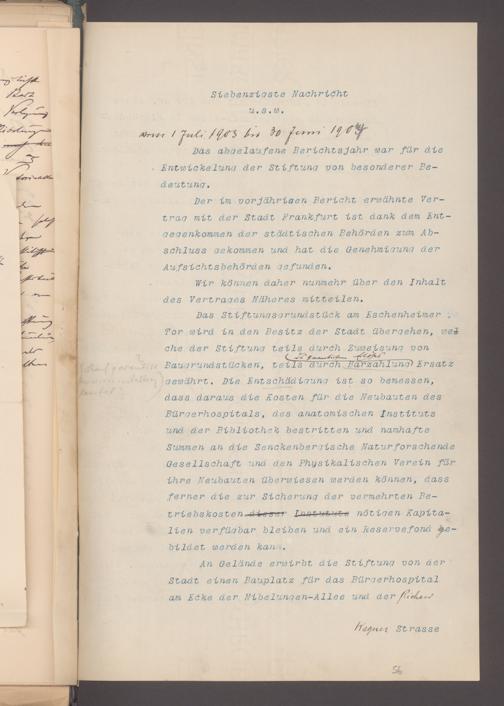 Siebenzigste Nachricht
u.s.w.
vom 1 Juli 1903 bis 30 Juni 1904
Das abgelaufene Berichtsjahr war für die
Entwickelung der Stiftung von besonderer Be-
deutung.
Der im vorjährigen Bericht erwähnte Ver-
trag mit der Stadt Frankfurt ist dank dem Ent-
gegenkommen der städtischen Behörden zum Ab-
schluss gekommen und hat die Genehmigung der
Aufsichtsbehörden gefunden.
Wir können daher nunmehr über den Inhalt
des Vertrages Näheres mitteilen.
Das Stiftungsgrundstück am Eschenheimer
Tor wird in den Besitz der Stadt übergehen, wel
che der Stiftung teils durch Zuweisung von
Baugrundstücken, teils durch Barzahlung Ersatz
gewährt. Die Entschädigung ist so bemessen,
dass daraus die Kosten für die Neubauten des
Bürgerhospitals, des anatomischen Instituts
und der Bibliothek bestritten und namhafte
Summen an die Senckenbergische Naturforschende
Gesellschaft und den Physikalischen Verein für
ihre Neubauten überwiesen werden können, dass
ferner die zur Sicherung der vermehrten Be-
triebskosten dieser Institute nötigen Kapita-
lien verfügbar bleiben und ein Reservefond ge-
bildet werden kann.
An Gelände erwirbt die Stiftung von der
Stadt einen Bauplatz für das Bürgerhospital
am Ecke der Nibelungen-Allee und der Richard
Wagner Strasse
56